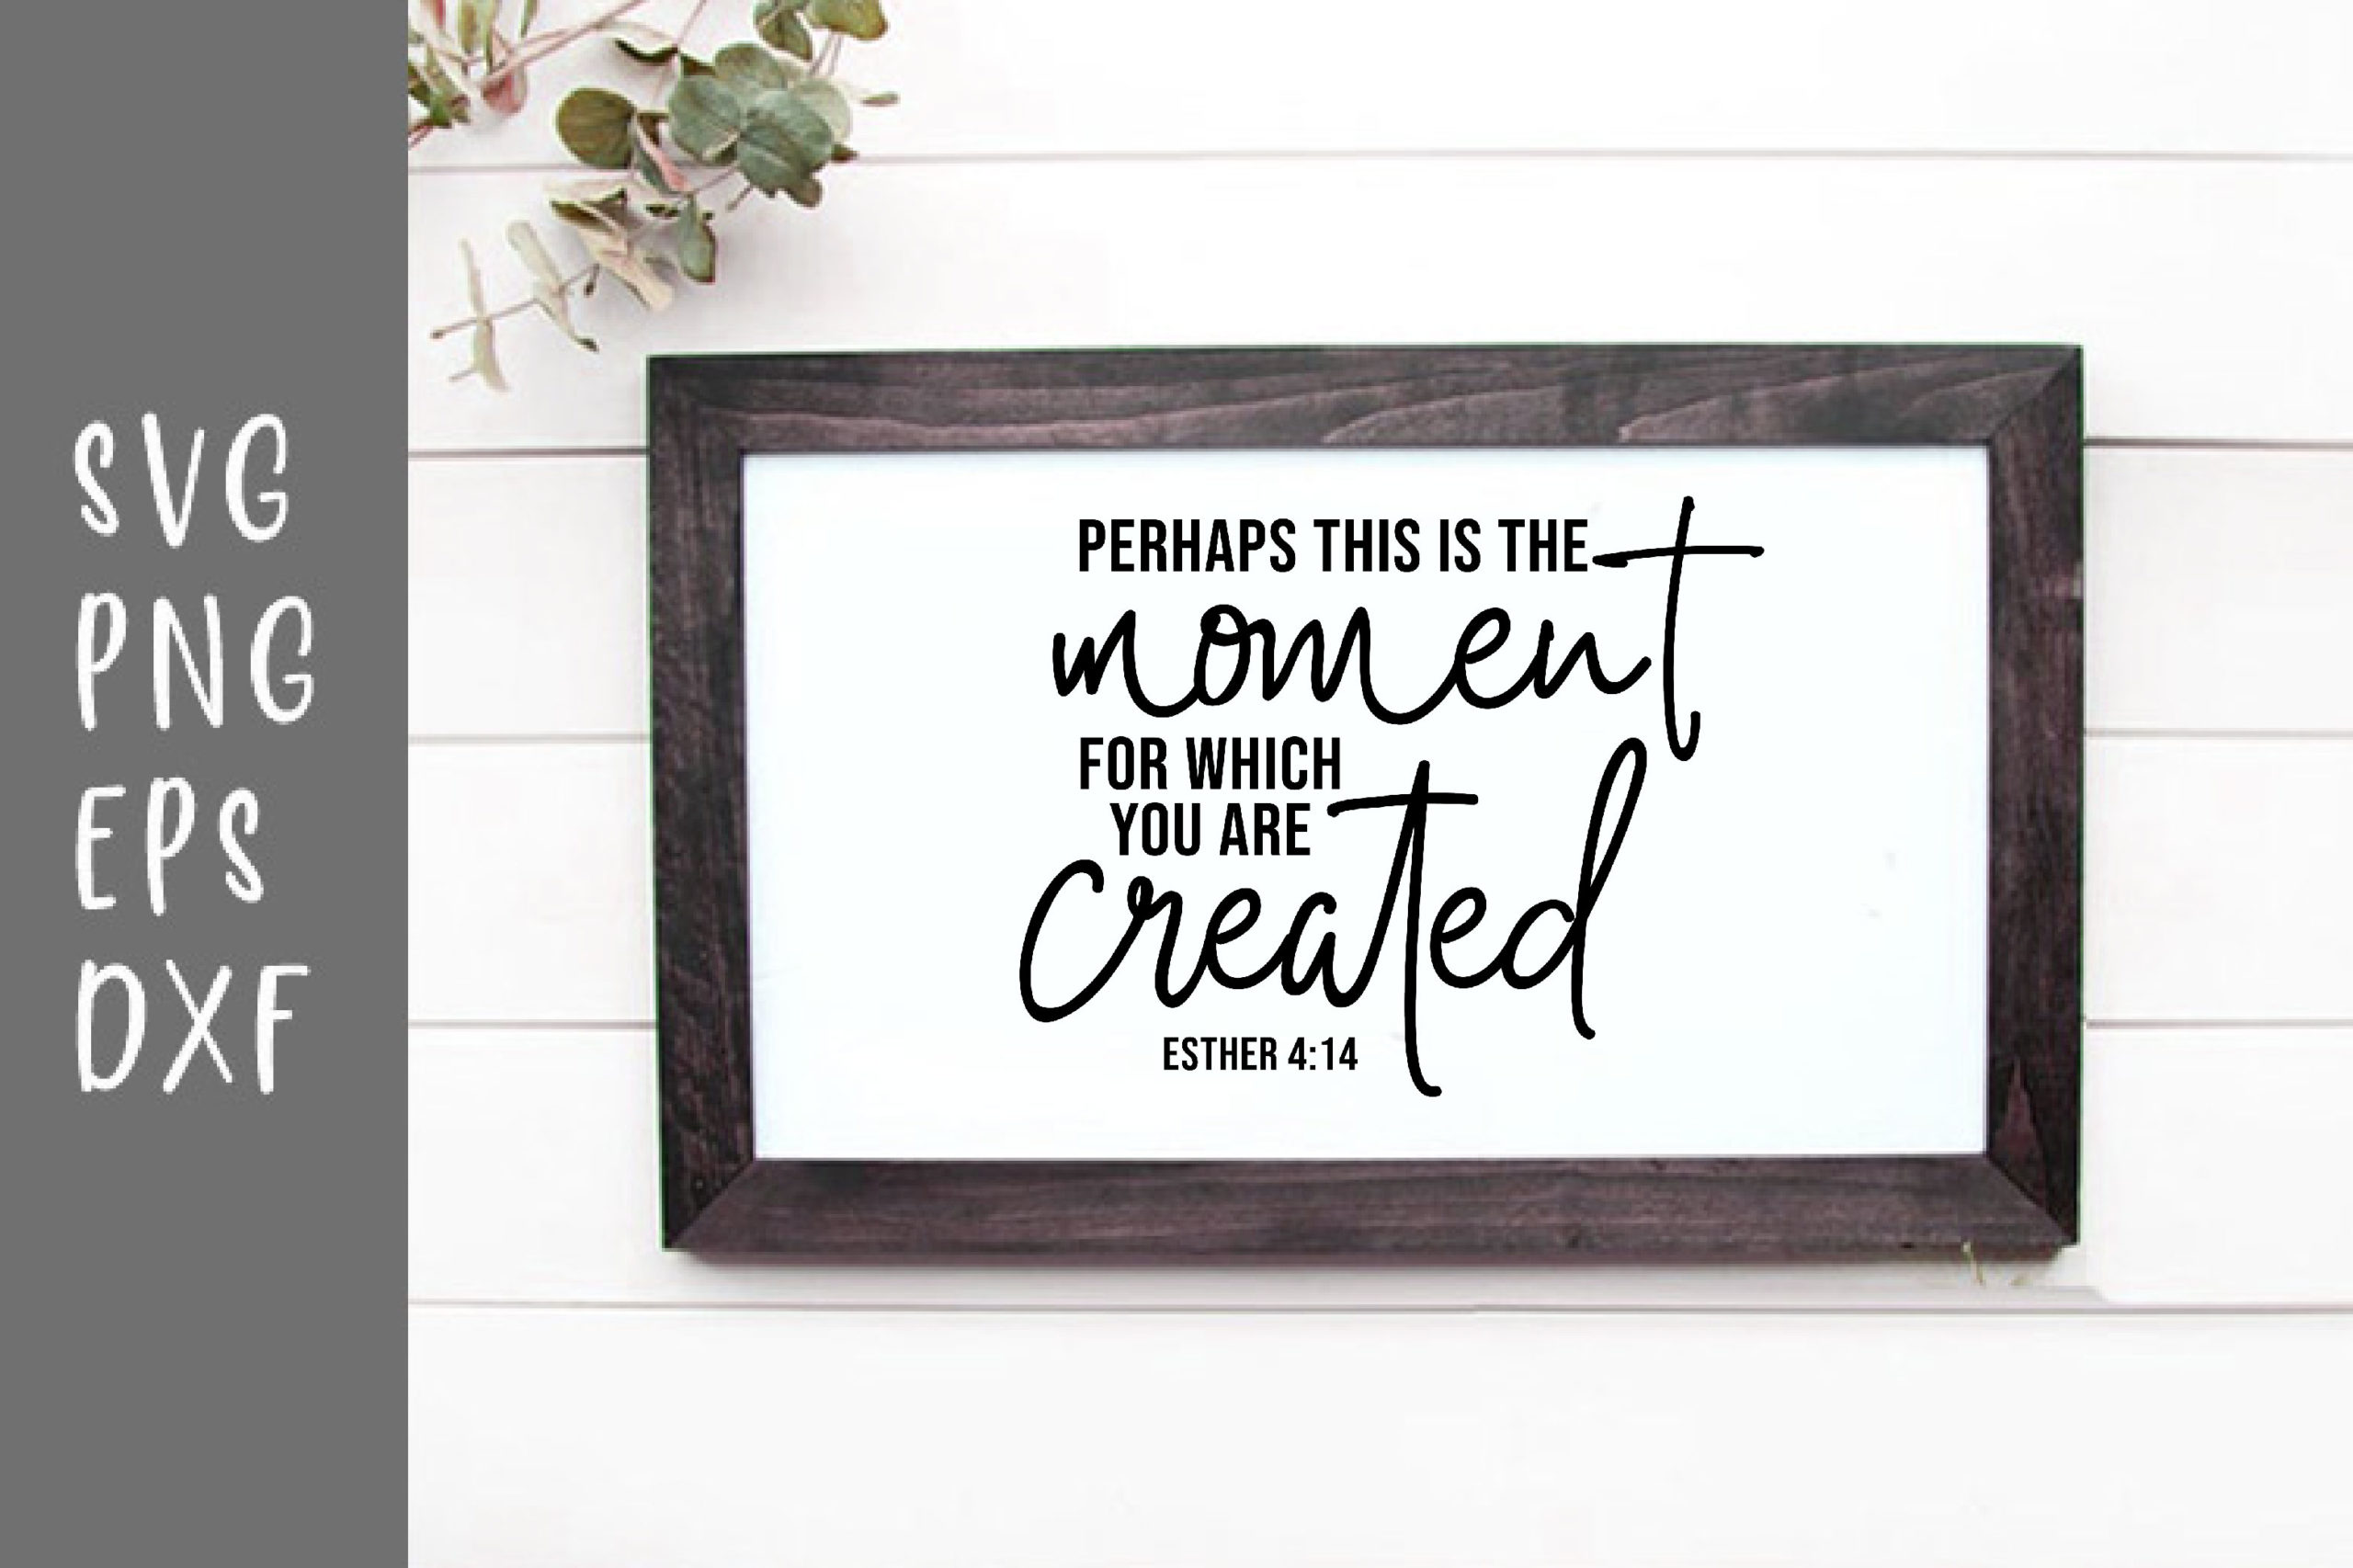 SVG
PNG
EPS
DXF
PERHAPS THIS IS THE
moment
FOR WHICH
YOU ARE
created
ESTHER 4:14